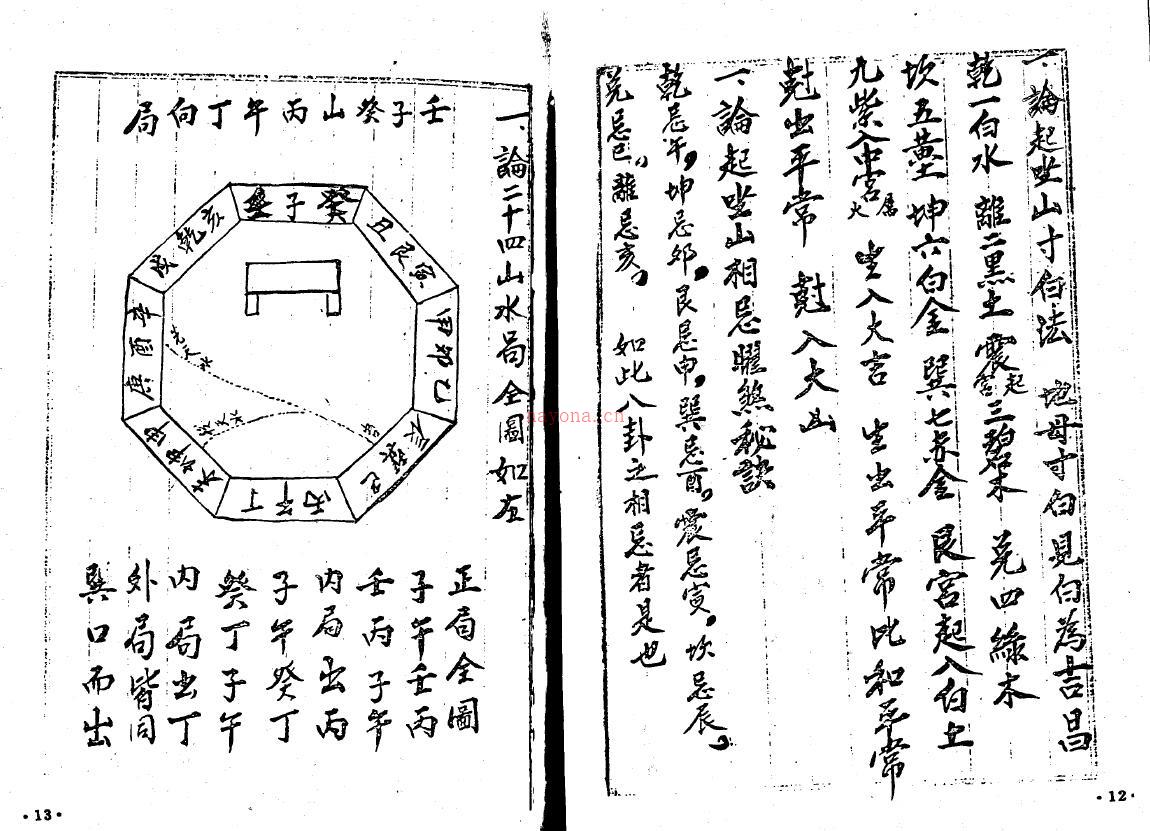 一、論起坐山寸白法　地母寸白見白為吉昌
乾一白水　離二黑土　震宮起三碧木　兑四綠木
坎五黃土　坤六白金　巽七赤金　艮宮起八白土
九紫入中宮屬火　生入大吉　生出平常比和平常
尅出平常　尅入大凶
一、論起坐山相忌曜煞秘訣
乾忌午，坤忌卯，艮忌申，巽忌酉，震忌寅，坎忌辰，
兑忌巳，離忌亥，　如此八卦之相忌者是也
·12·
一、論二十四山水局全圖如左
壬子癸山丙午丁向局
壬子癸
丑艮寅
甲卯乙
辰巽巳
丙午丁
未坤申
庚酉辛
戌乾亥
正局全圖
子午壬丙
壬丙子午
内局出丙
子午癸丁
癸丁子午
内局出丁
外局皆同
巽口而出
·13·
nayona.cn